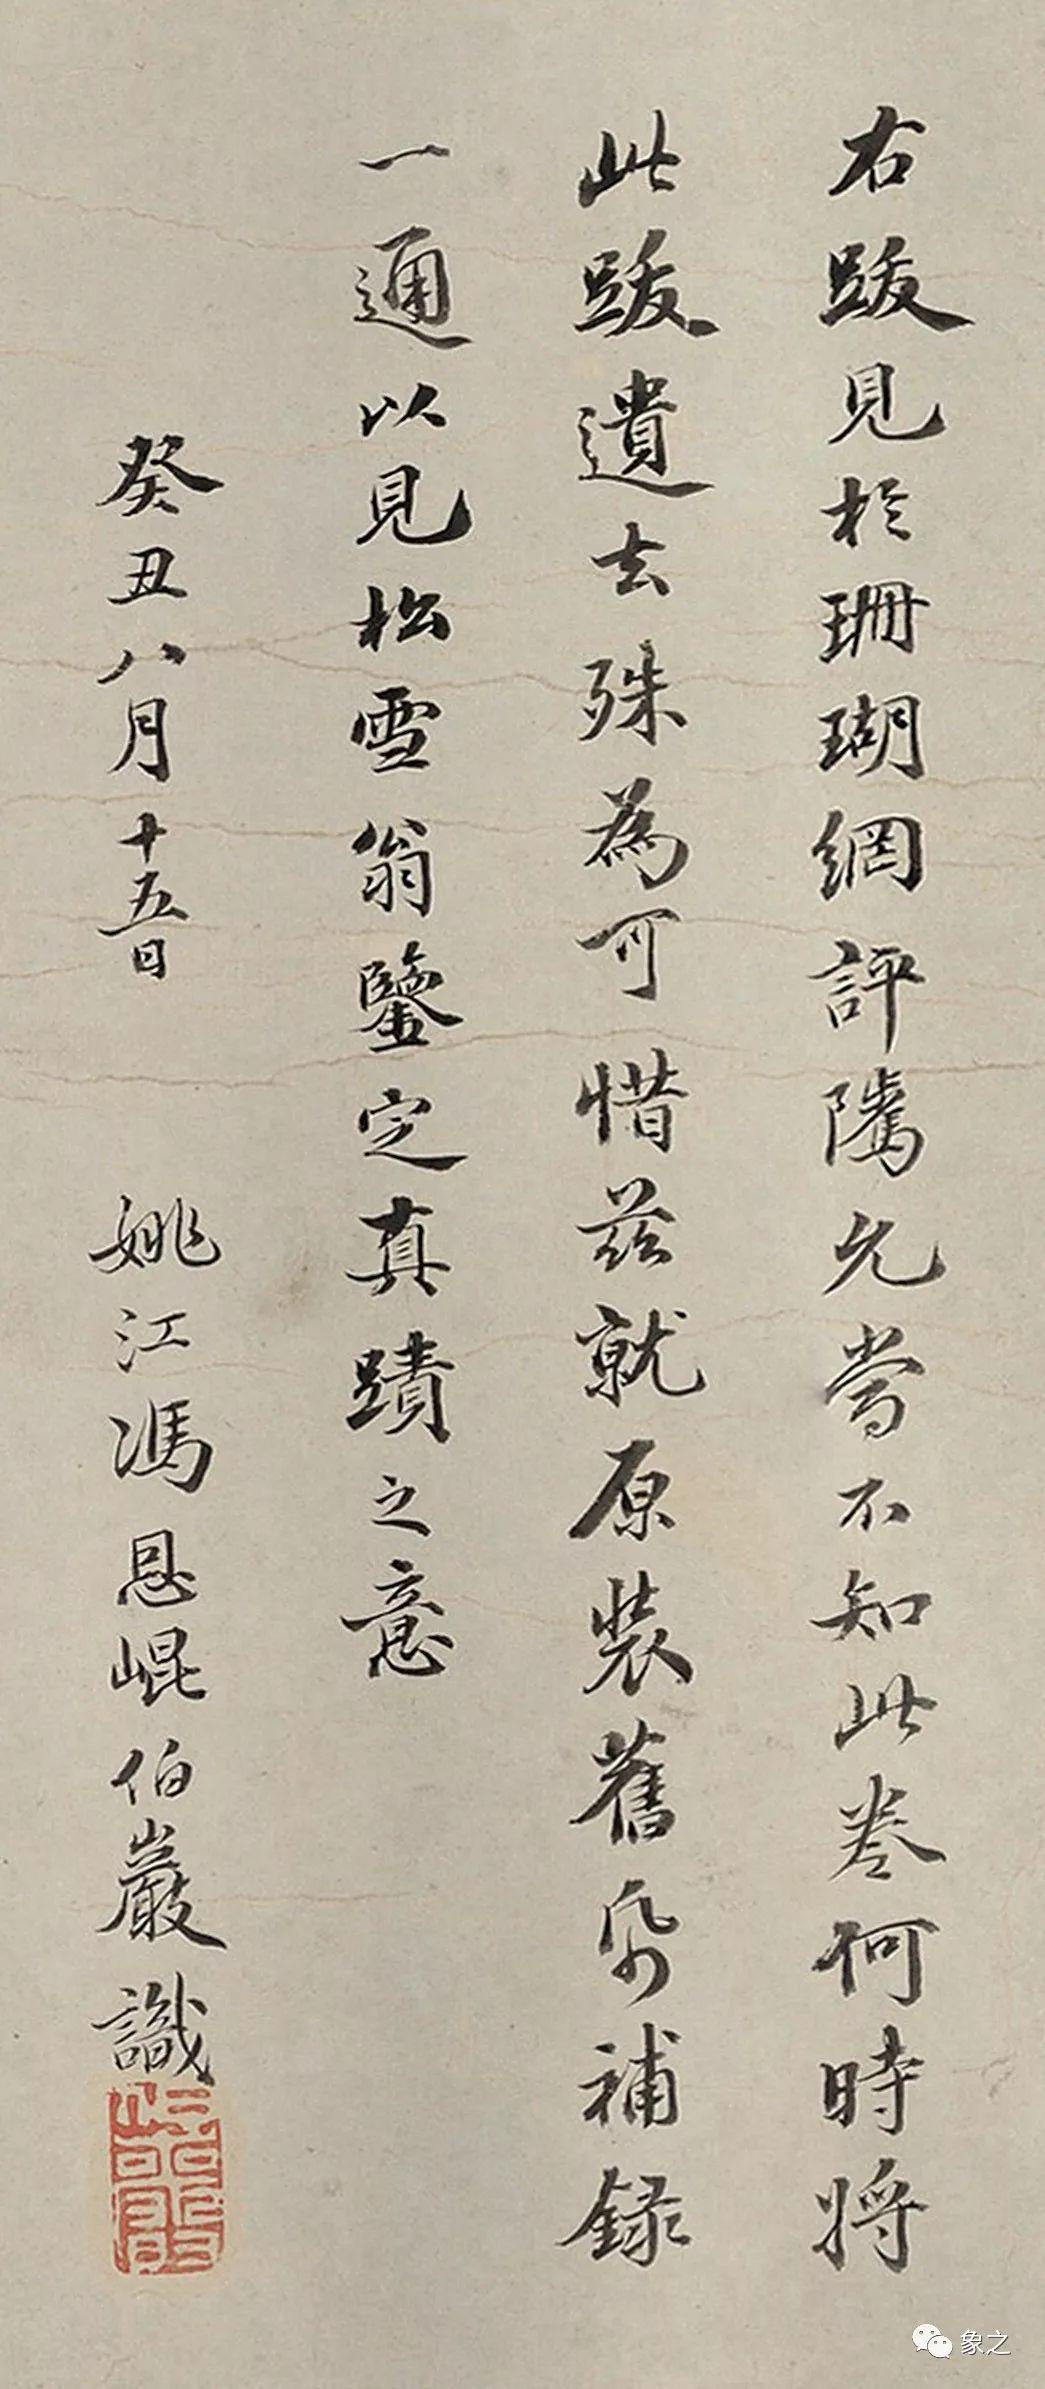 右跋見於珊瑚網評隲允當不知此卷何時將
此跋遺去殊為可惜茲就原裝舊帋補錄
一通以見松雪翁鑒定真蹟之意
癸丑八月十五日 姚江馮恩崐伯巖識
象之